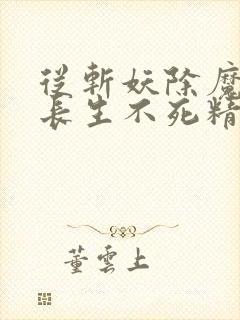 從斬妖除魔
長生不死精
董雲上